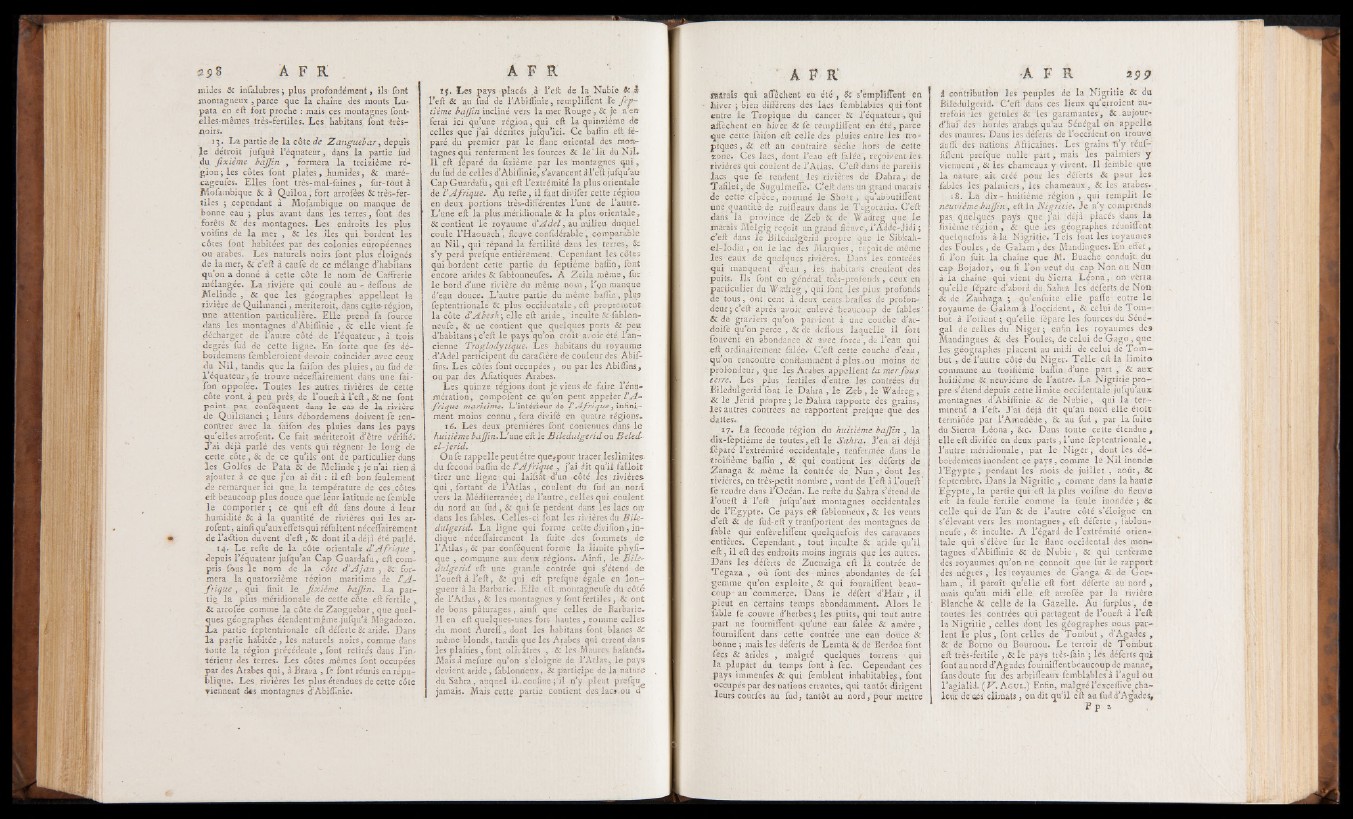 298 A F R
mides & insalubres ; plus profondément, ils sont
montagneux, parce que la chaîne des monts Lu-
pata en est fort proche : mais ces montagnes sont-
elles-mêmes très-fertiles. Les habitans sont très-
noirs.
13. La partie de la côte de Zanguebar, depuis
le détroit jusqu'à l'équateur, dans la partie sud
du sixième bassin, formera la treizième ré-
gion ; les côtes sont plates, humides, & maré-
cageuses. Elles sont très-mal-saines, sur-tout à
Mosambique & à Quiloa, fort arrosées & très-fer-
tiles ; cependant à Mosambique on manque de
bonne eau ; plus avant dans les terres, sont des
forêts & des montagnes. Les endroits les plus
voisins de la mer, & les îles qui bordent les
côtes sont habitées par des colonies européennes
ou arabes. Les naturels noirs sont plus éloignés
de la mer, & c'est à cause de ce mélange d'habitans
qu'on a donné à cette côte le nom de Caffrerie
mélangée. La rivière qui coule au-dessous de
Melinde, & que les géographes appellent la
rivière de Quilmanci, mériteroit, dans cette région,
une attention particulière. Elle prend sa source
dans les montagnes d'Abissinie, & elle vient se
décharger de l'autre côté de l'équateur, à trois
degrés sud de cette ligne. En sorte que ses dé-
bordemens sembleroient devoir coincider avec ceux
du Nil, tandis que la saison des pluies, au sud de
l'équateur, se trouve nécessairement dans une sai-
son opposée. Toutes les autres rivières de cette
côte vont à peu près de l'ouest à l'est, & ne sont
point par conséquent dans le cas de la rivière
de Quilmanci ; leurs débordemens doivent se ren-
contrer avec la saison des pluies dans les pays
qu'elles arrosent. Ce fait mériteroit d'être vérifié.
J'ai déjà parlé des vents qui règnent le long de
cette côte, & de ce qu'ils ont de particulier dans
les Golfes de Pata & de Melinde ; je n'ai rien à
ajouter à ce que j'en ai dit : il est bon seulement
de remarquer ici que la température de ces côtes
est beaucoup plus douce que leur latitude ne semble
le comporter ; ce qui est dû sans doute à leur
humidité & à la quantité de rivières qui les ar-
rosent, ainsi qu'aux effets qui résultent nécessairement
de l'action du vent d'est, & dont il a déjà été parlé.
14. Le reste de la côte orientale d'Afrique,
depuis l'équateur jusqu'au Cap Guardafu, est com-
pris sous le nom de la côte d'Ajan, & for-
mera la quatorzième région maritime de l'A-
frique, qui finit le sixième bassin. La par-
tie la plus méridionale de cette côte est fertile,
& arrosée comme la côte de Zanguebar, que quel-
ques géographes étendent même jusqu'à Magadoxo.
La partie septentrionale est déserte & aride. Dans
la partie habitée, les naturels noirs, comme dans
toute la région précédente, sont retirés dans l'in-
térieur des terres. Les côtes mêmes sont occupées
par des Arabes qui, à Brava, se sont réunis en répu-
blique. Les rivières les plus étendues de cette côte
viennent des montagnes d'Abissinie.
A F R
15. Les pays placés à l'est de la Nubie & à
l'est & au sud de l'Abissinie, remplissent le sep-
tième bassin incliné vers la mer Rouge, & je n'en
ferai ici qu'une région, qui est la quinzième de
celles que j'ai décrites jusqu'ici. Ce bassin est sé-
paré du premier par le flanc oriental des mon-
tagnes qui renferment les sources & le lit du Nil.
Il est séparé du sixième par les montagnes qui,
du sud de celles d'Abissinie, s'avancent à l'est jusqu'au
Cap Guardafu, qui est l'extrémité la plus orientale
de l'Afrique. Au reste, il faut diviser cette région
en deux portions très-différentes l'une de l'autre.
L'une est la plus méridionale & la plus orientale,
& contient le royaume d'Adel, au milieu duquel
coule l'Haouach, fleuve considérable, comparable
au Nil, qui répand la fertilité dans les terres, &
s'y perd presque entièrement. Cependant les côtes
qui bordent cette partie du septième bassin, sont
encore arides & sablonneuses. A Zeila même, sur
le bord d'une rivière du même nom, l'on manque
d'eau douce. L'autre partie du même bassin, plus
septentrionale & plus occidentale, est proprement
la côte d'Abexh ; elle est aride, inculte & sablon-
neuse, & ne contient que quelques ports & peu
d'habitans ; c'est le pays qu'on croit avoir été l'an-
cienne Troglodytique. Les habitans du royaume
d'Adel participent du caractère de couleur des Abis-
sins. Les côtes sont occupées, ou par les Abissins,
ou par des Asiatiques Arabes.
Les quinze régions dont je viens de faire l'énu-
mération, composent ce qu'on peut appeler l'A-
frique maritime. L'intérieur de l'Afrique, infini-
ment moins connu, sera divisé en quatre régions.
16. Les deux premières sont contenues dans le
huitième bassin. L'une est le Biledulgerid ou Beled-
el-jerid.
On se rappelle peut être que, pour tracer les limites
du second bassin de l'Afrique, j'ai dit qu'il falloit
tirer une ligne qui laissât d'un côté les rivières
qui, sortant de l'Atlas, coulent du sud au nord
vers la Méditerranée; de l'autre, celles qui coulent
du nord au sud, & qui se perdent dans les lacs ou
dans les sables. Celles-ci sont les rivières du Bile-
dulgerid. La ligne qui forme cette division, in-
dique nécessairement la suite des sommets de
l'Atlas, & par conséquent forme la limite physi-
que, commune aux deux régions. Ainsi, le Bile-
dulgerid est une grande contrée qui s'étend de
l'ouest à l'est, & qui est presque égale en lon-
gueur à la Barbarie. Elle est montagneuse du côté
de l'Atlas, & les montagnes y sont fertiles, & ont
de bons pâturages, ainsi que celles de Barbarie.
Il en est quelques-unes fort hautes, comme celles
du mont Aureff, dont les habitans sont blancs &
même blonds, tandis que les Arabes qui errent dans
les plaines, sont olivâtres, & les Maures basanés.
Mais à mesure qu'on s'éloigne de l'Atlas, le pays
devient aride, sablonneux, & participe de la nature
du Sahra, auquel il confine ; il n'y pleut presque
jamais. Mais cette partie contient des lacs ou d
A F R
marais qui assèchent en été, & s'emplissent en
hiver ; bien différens des lacs semblables qui sont
entre le Tropique du cancer & l'équateur, qui
assèchent en hiver & se remplissent en été, parce
que cette saison est celle des pluies entre les tro-
piques, & est au contraire sèche hors de cette
zone. Ces lacs, dont l'eau est salée, reçoivent les
rivières qui coulent de l'Atlas. C'est dans de pareils
lacs que se rendent les rivières de Dahra, de
Tafilet, de Sugulmesse. C'est dans un grand marais
de cette espèce, nommé le Shott, qu'aboutissent
une quantité de ruisseaux dans le Tegorarin. C'est
dans la province de Zeb & de Wadreg que le
marais Melgig reçoit un grand fleuve, l'Adde-Jidi ;
c'est dans le Biledulgerid propre que le Sibkah-
el-lodia, ou le lac des Marques, reçoit de même
les eaux de quelques rivières. Dans les contrées
qui manquent d'eau, les habitans creusent des
puits. Ils sont en général très-profonds, ceux en
particulier du Wadreg, qui sont les plus profonds
de tous, ont cent à deux cens brasses de profon-
deur ; c'est après avoir enlevé beaucoup de sables
& de graviers qu'on parvient à une couche d'ar-
doise qu'on perce, & de dessous laquelle il sort
souvent en abondance & avec force, de l'eau qui
est ordinairement salée. C'est cette couche d'eau,
qu'on rencontre constamment à plus ou moins de
profondeur, que les Arabes appellent la mer sous
terre. Les plus fertiles d'entre les contrées du
Biledulgerid sont le Dahra, le Zeb, le Wadreg,
& le Jerid propre ; le Dahra rapporte des grains,
les autres contrées ne rapportent presque que des
dattes.
17. La seconde région du huitième bassin, la
dix-septième de toutes, est le Sahra. J'en ai déjà
séparé l'extrémité occidentale, renfermée dans le
troisième bassin, & qui contient les déserts de
Zanaga & même la contrée de Nun, dont les
rivières, en très-petit nombre, vont de l'est à l'ouest
se rendre dans l'Océan. Le reste du Sahra s'étend de
l'ouest à l'est jusqu'aux montagnes occidentales
de l'Egypte. Ce pays est sablonneux, & les vents
d'est & de sud-est y transportent des montagnes de
sable qui ensevelissent quelquefois des caravanes
entières. Cependant, tout inculte & aride qu'il
est, il est des endroits moins ingrats que les autres.
Dans les déserts de Zuenziga est la contrée de
Tegaza, où sont des mines abondantes de sel
gemme qu'on exploite, & qui fournissent beau-
coup au commerce. Dans le désert d'Hair, il
pleut en certains temps abondamment. Alors le
sable se couvre d'herbes ; les puits, qui tout autre
part ne fournissent qu'une eau salée & amère,
fournissent dans cette contrée une eau douce &
bonne ; mais les déserts de Lemta & de Berdoa sont
secs & arides, malgré quelques torrens qui
la plupart du temps sont à sec. Cependant ces
pays immenses & qui semblent inhabitables, sont
occupés par des nations errantes, qui tantôt dirigent
leurs courses au sud, tantôt au nord, pour mettre
A F R 299
à contribution les peuples de la Nigritie & du
Biledulgerid. C'est dans ces lieux qu'erroient au-
trefois les gétules & les garamantes, & aujour-
d'hui des hordes arabes qu'au Sénégal on appelle
des maures. Dans les déserts de l'occident on trouve
aussi des nations Africaines. Les grains n'y réus-
sissent presque nulle part, mais les palmiers y
viennent, & les chameaux y vivent. Il semble que
la nature ait créé pour les déserts & pour les
sables les palmiers, les chameaux, & les arabes.
18. La dix-huitième région, qui remplit le
neuvième bassin, est la Nigritie. Je n'y comprends
pas quelques pays que j'ai déjà placés dans la
sixième région, & que les géographes réunissent
quelquefois à la Nigritie. Tels sont les royaumes
des Foules, de Galam, des Mandingues. En effet,
si l'on suit la chaîne que M. Buache conduit du
cap Bojador, ou si l'on veut du cap Non ou Nun
à la chaîne qui vient du Sierra Léona, on verra
qu'elle sépare d'abord du Sahra les déserts de Non
& de Zanhaga ; qu'ensuite elle passe entre le
royaume de Galam à l'occident, & celui de Tom-
but à l'orient ; qu'elle sépare les sources du Séné-
gal de celles du Niger ; enfin les royaumes des
Mandingues & des Foules, de celui de Gago, que
les géographes placent au midi de celui de Tom-
but, de l'autre côté du Niger. Telle est la limite
commune au troisième bassin d'une part, & aux
huitième & neuvième de l'autre. La Nigritie pro-
pre s'étend depuis cette limite occidentale jusqu'aux
montagnes d'Abissinie & de Nubie, qui la ter-
minent à l'est. J'ai déjà dit qu'au nord elle étoit
terminée par l'Amedède, & au sud, par la suite
du Sierra Léona, &c. Dans toute cette étendue,
elle est divisée en deux parts, l'une septentrionale,
l'autre méridionale, par le Niger, dont les dé-
bordemens inondent ce pays, comme le Nil inonde
l'Egypte, pendant les mois de juillet, août, &
septembre. Dans la Nigritie, comme dans la haute
Egypte, la partie qui est la plus voisine du fleuve
est la seule fertile comme la seule inondée ; &
celle qui de l'un & de l'autre côté s'éloigne en
s'élevant vers les montagnes, est déserte, sablon-
neuse, & inculte. A l'égard de l'extrémité orien-
tale qui s'élève sur le flanc occidental des mon-
tagnes d'Abissinie & de Nubie, & qui renferme
des royaumes qu'on ne connoît que sur le rapport
des nègres, les royaumes de Ganga & de Gor-
ham, il paroît qu'elle est fort déserte au nord,
mais qu'au midi elle est arrosée par la rivière
Blanche & celle de la Gazelle. Au surplus, de
toutes les contrées qui partagent de l'ouest à l'est
la Nigritie, celles dont les géographes nous par-
lent le plus, sont celles de Tombut, d'Agades,
& de Borno ou Bournou. Le terroir de Tombut
est très-fertile, & le pays très-sain ; les déserts qui
sont au nord d'Agades fournissent beaucoup de manne,
sans doute sur des arbrisseaux semblables à l'agul ou
l'agialid. (V. AGUL.) Enfin, malgré l'excessive cha-
leur de ces climats, on dit qu'il est au sud d'Agades,
P p 2